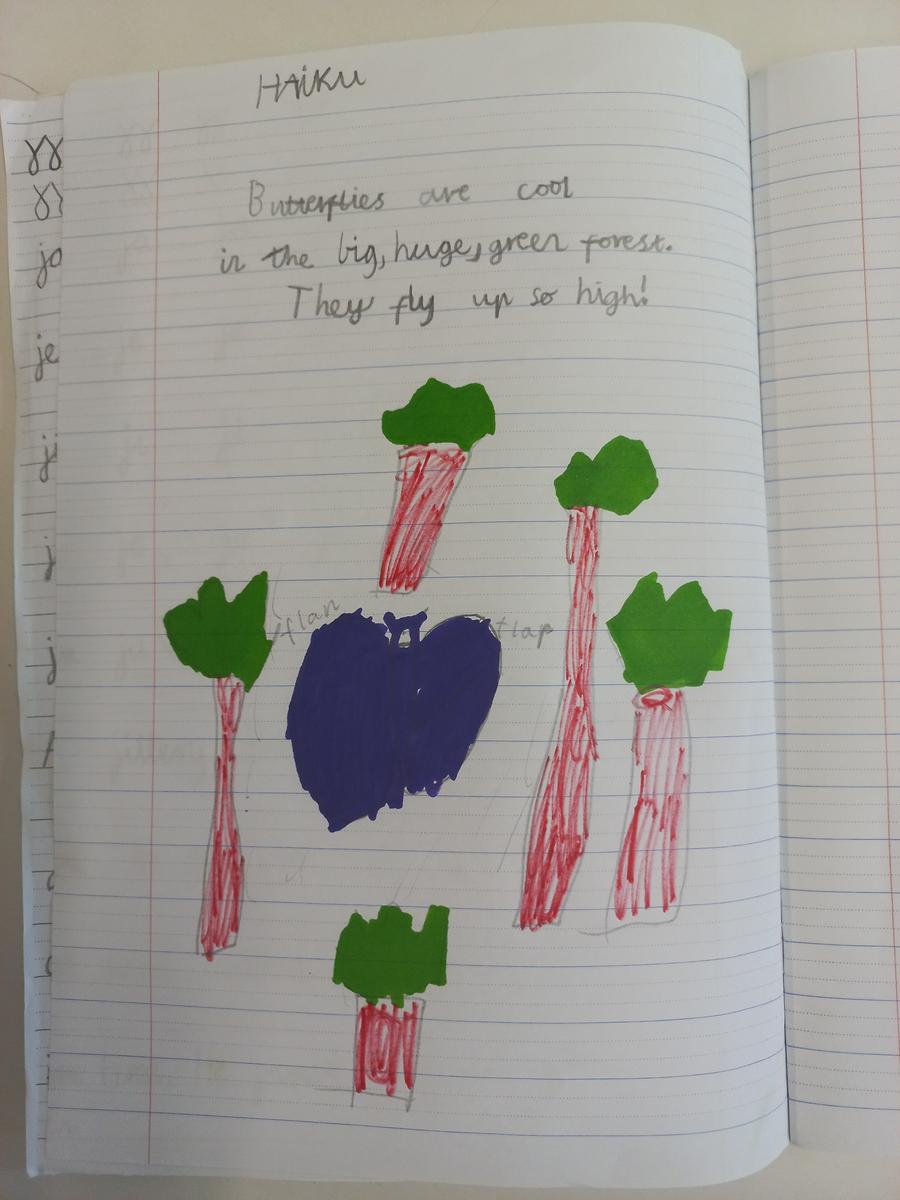 HAiKU
Butterflies are cool
in the big, huge, green forest.
They fly up so high!
flap
flap
yy
y
jo
je
ji